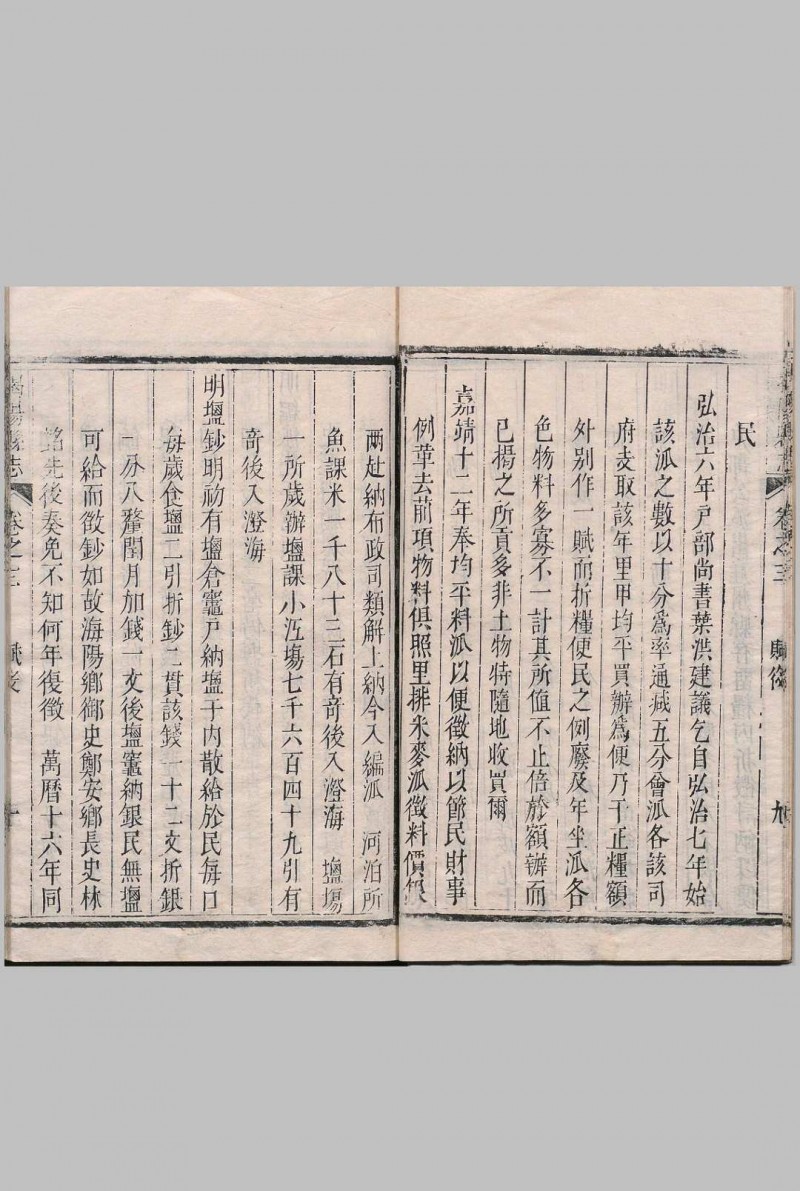 民
弘治六年戸部尚書葉淇建議乞自弘治七年始
該派之數以十分爲率通减五分會派各該司
府支取該年里甲均平買辦爲便乃于正糧額
外别作一賦而折糧便民之例廢及年坐派各
色物料多寡不一計其所值不止倍於額辦而
已揭之所貢多非土物特隨地收買爾
嘉靖十二年奉均平料派以便徵納以節民財事
例革去前項物料俱照里排米麥派徵料價銀
卷之三 賦役 九
两赴納布政司類解上納今入編派 河泊所
魚課米一千八十三石有竒後入澄海 塩塲
一所歲辦塩課小江塲七千六百四十九引有
竒後入澄海
明塩鈔明初有塩倉竈戸納塩于内散給於民每口
每歲食塩二引折鈔二貫該錢一十二文折銀
一分八釐閏月加錢一文後塩竈納銀民無塩
可給而徵鈔如故海陽鄉御史鄭安鄉長史林
銘先後奏免不知何年復徵 萬曆十六年同
海陽縣志 卷之三 賦役 十